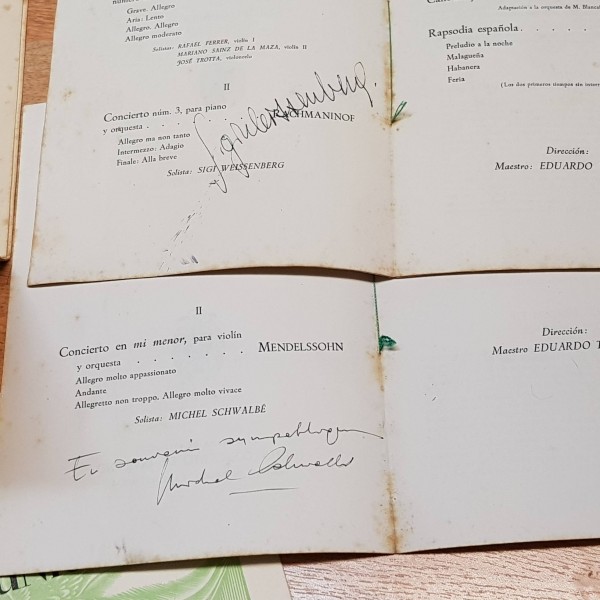 Grave. Allegro
Aria: Lento
Allegro. Allegro
Allegro moderato
Solistas: RAFAEL FERRER, violín I
MARIANO SAINZ DE LA MAZA, violín II
JOSÉ TROTTA, violoncelo
II
Concierto núm. 3, para piano
y orquesta . . . . . . RACHMANINOF
Allegro ma non tanto
Intermezzo: Adagio
Finale: Alla breve
Solista: SIGI WEISSENBERG
Sigi Weissenberg
Adaptación a la orquesta de M.
Rapsodia española . . . .
Preludio a la noche
Malagueña
Habanera
Feria
(Los dos primeros tiempos sin
Dirección:
Maestro: EDUARDO
II
Concierto en mi menor, para violín
y orquesta . . . . . . . MENDELSSOHN
Allegro molto appassionato
Andante
Allegretto non troppo. Allegro molto vivace
Solista: MICHEL SCHWALBÉ
En souvenir sympathique
Michel Schwalbé
Dirección:
Maestro EDUARDO T